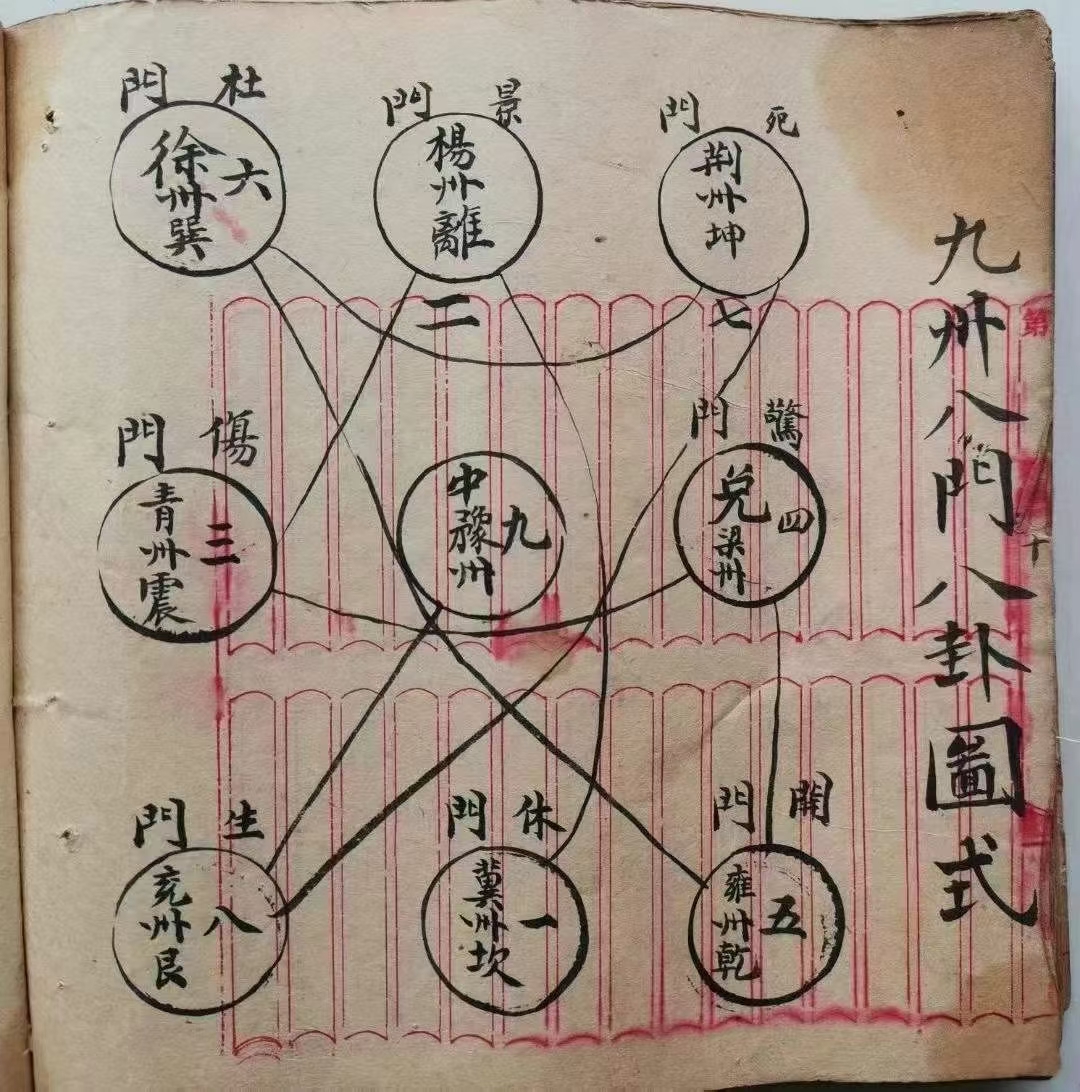 九州八門八卦圖式
死門
荆州坤
七
景門
楊州離
二
杜門
六
徐州巽
驚門
四
兌梁州
九
中豫州
傷門
三
青州震
開門
五
雍州乾
休門
一
冀州坎
生門
八
兖州艮
第
十